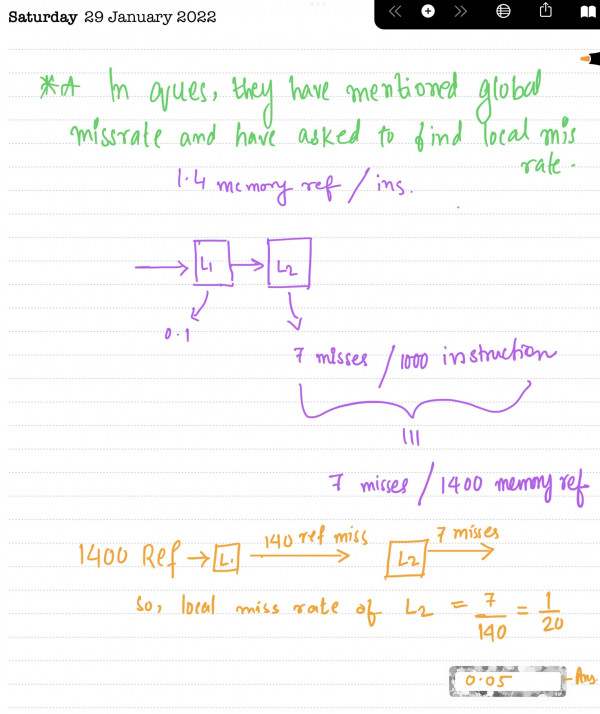 Saturday 29 January 2022
*A In ques, they have mentioned global
missrate and have asked to find local mis
rate.
1.4 memory ref / ins.
L1 L2
0.1
7 misses / 1000 instruction
111
7 misses / 1400 memory ref
1400 Ref → L1 140 ref miss L2 7 misses
So, local miss rate of L2 = 7/140 = 1/20
0.05 - Ans.